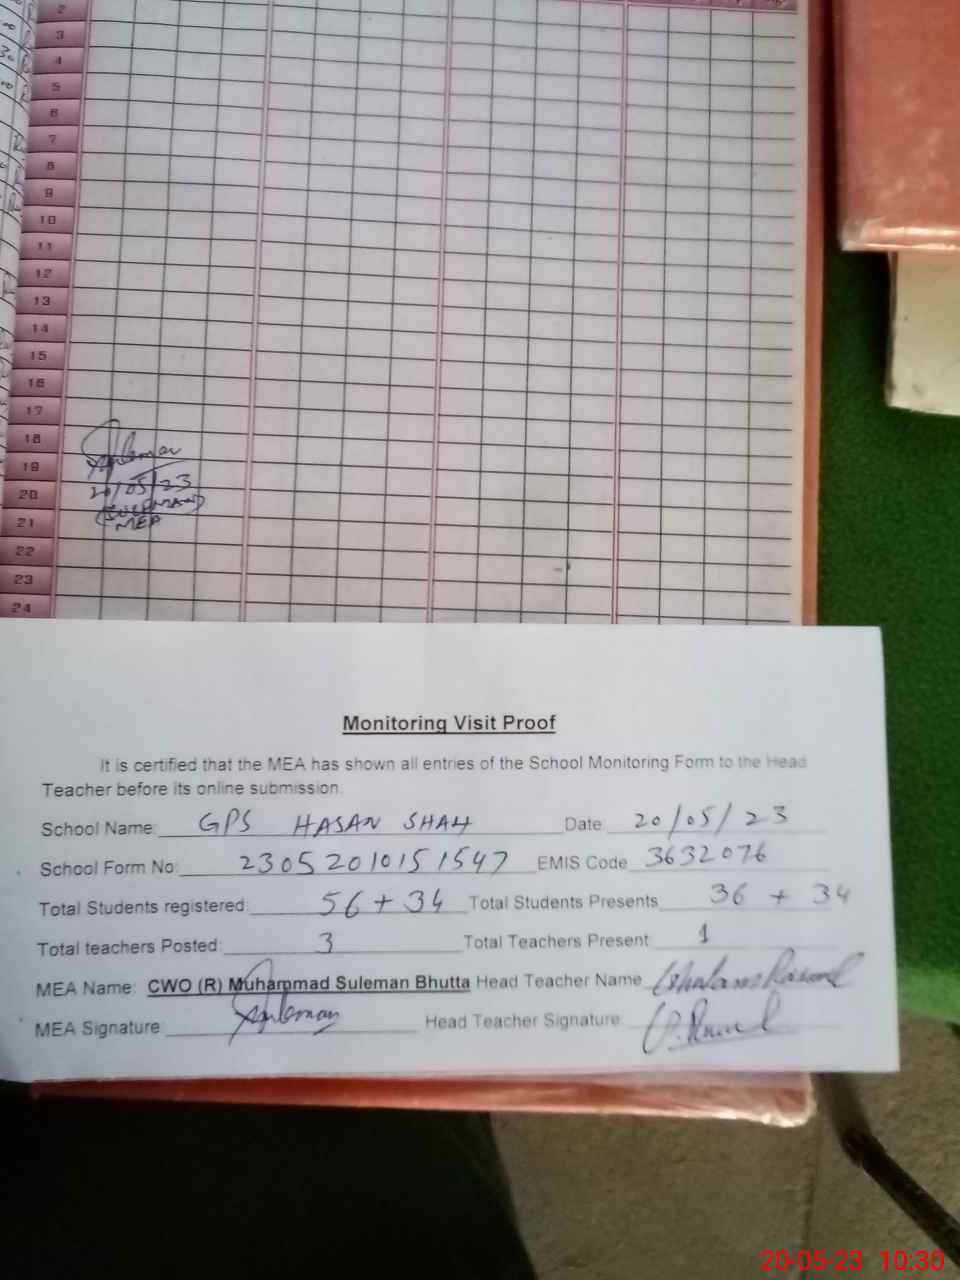 2
3
4
5
6
7
8
9
10
11
12
13
14
15
16
17
18
19
20
21
22
23
24
Suleman
20/05/23
(SULEMAN)
MEA
Monitoring Visit Proof
It is certified that the MEA has shown all entries of the School Monitoring Form to the Head
Teacher before its online submission.
School Name: GPS HASAN SHAH Date 20/05/23
School Form No: 23052010151547 EMIS Code 3632076
Total Students registered: 56 + 34 Total Students Presents 36 + 34
Total teachers Posted: 3 Total Teachers Present 1
MEA Name: CWO (R) Muhammad Suleman Bhutta Head Teacher Name Ghulam Rasool
MEA Signature Suleman Head Teacher Signature
20-05-23 10:30